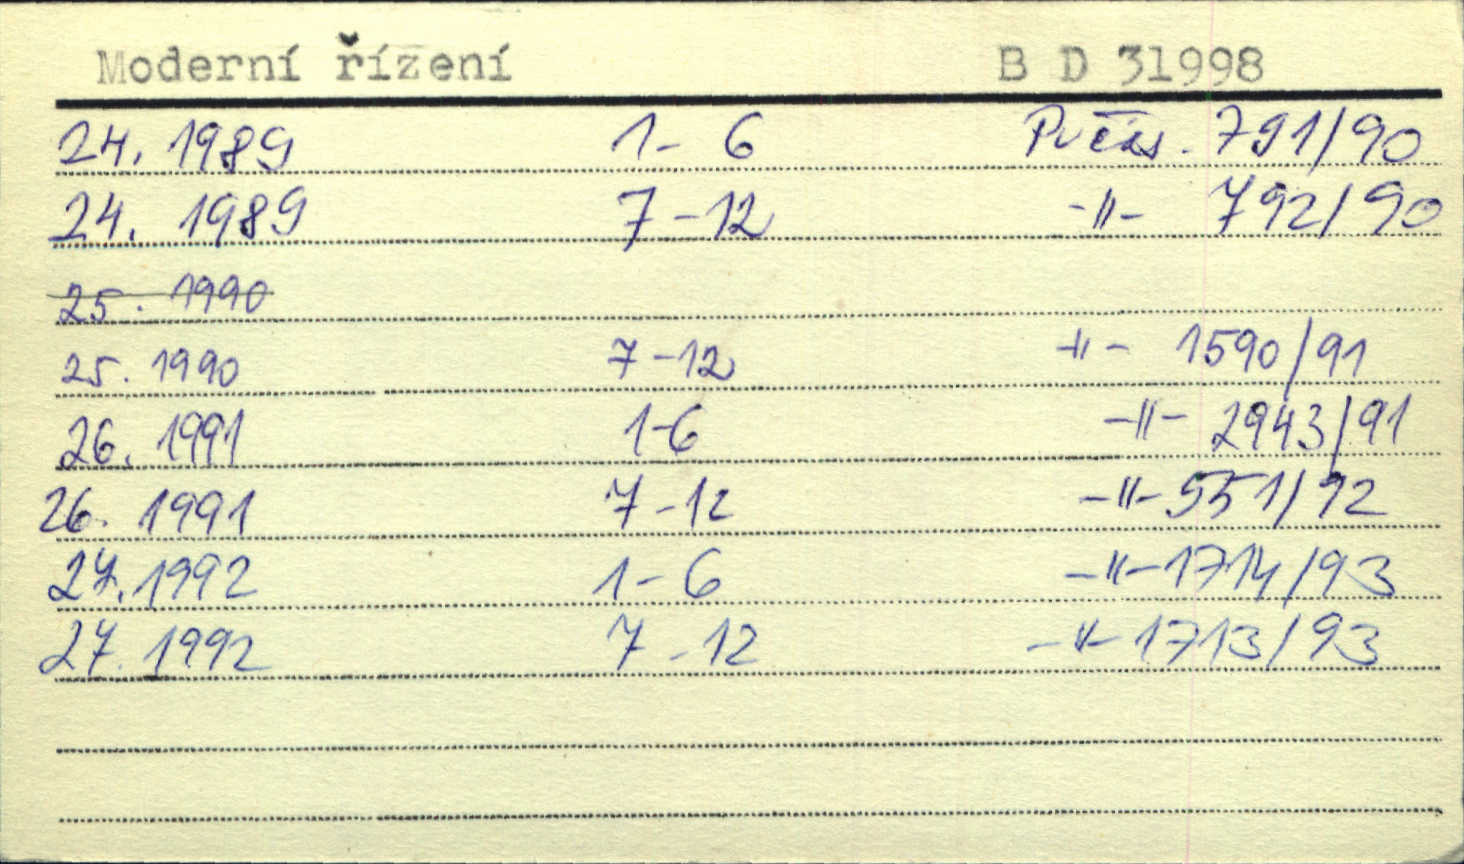 Moderní řízení B D 31998
24. 1989 1- 6 Pv čas. 791/90
24. 1989 7-12 -"- 792/90
25. 1990
25. 1990 7-12 -"- 1590/91
26. 1991 1-6 -"- 2943/91
26. 1991 7-12 -"- 551/92
27. 1992 1-6 -"- 1714/93
27. 1992 7-12 -"- 1713/93